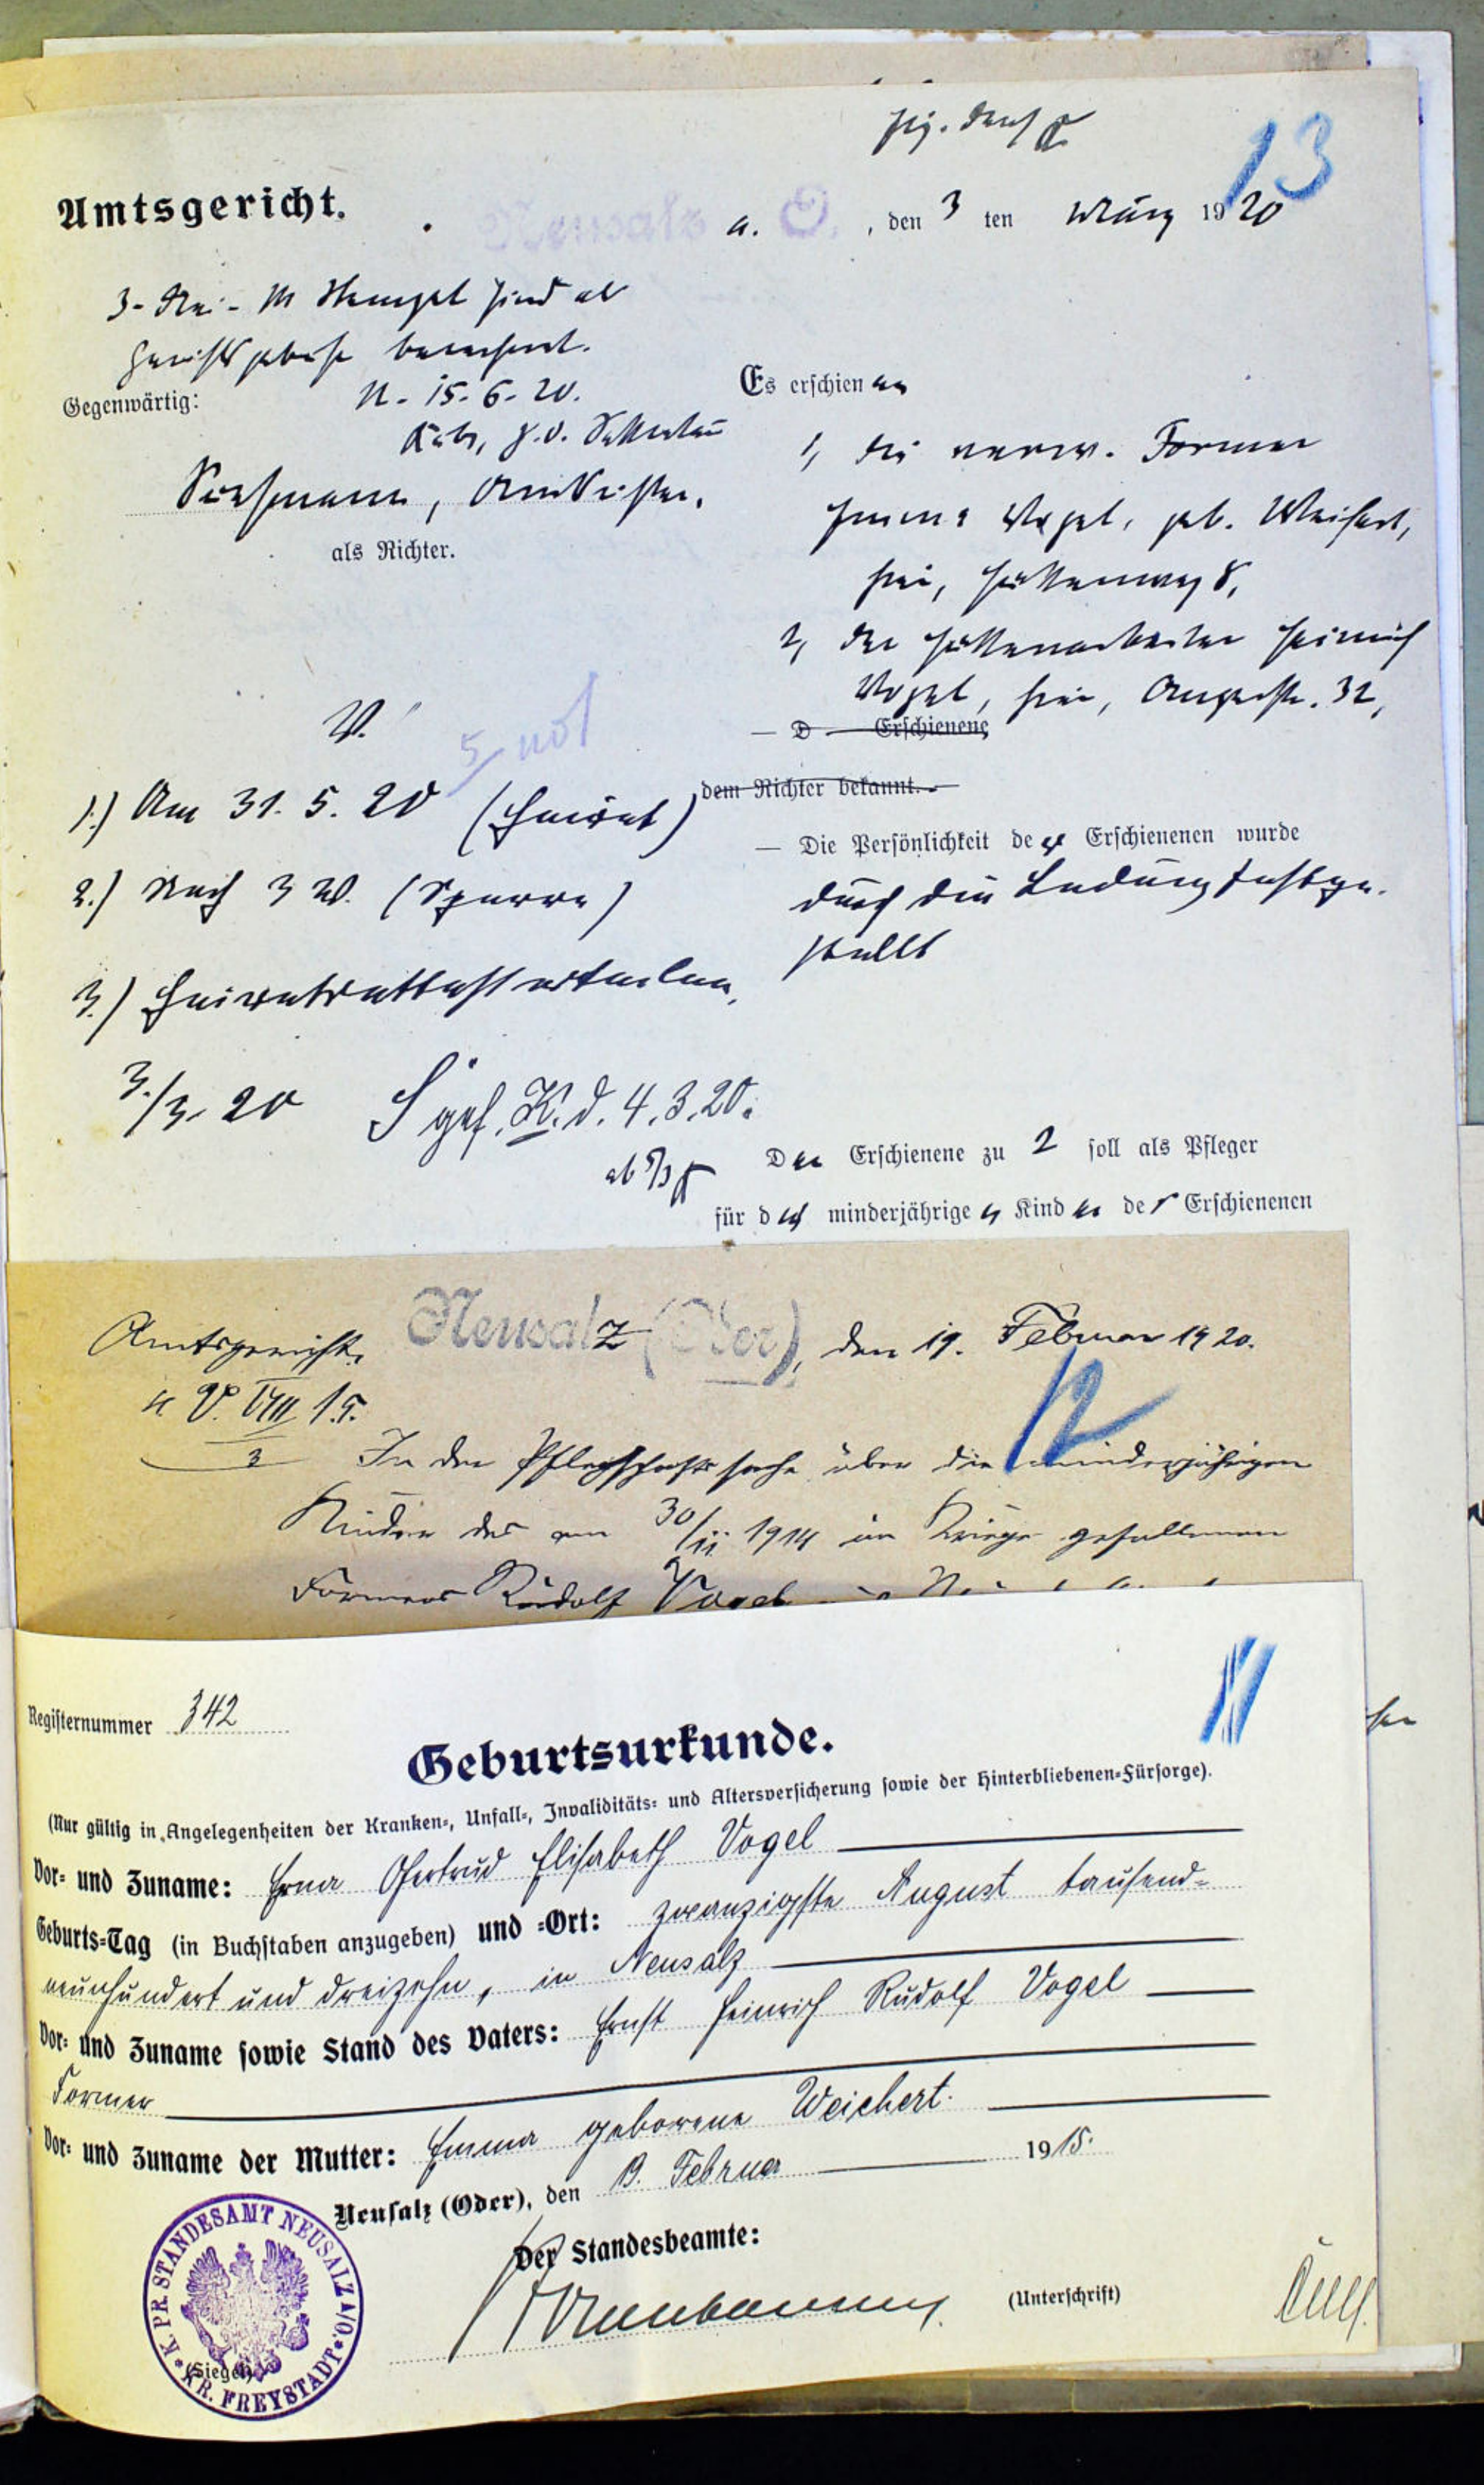 13
Amtsgericht.
Neusalz a. O., den 3 ten März 1920
3- Mk Stempel sind als
berechnet.
N. 15.6.20.
Gegenwärtig:
als Richter.
Es erschienen
1, die verw. Former
Emma Vogel, geb. Weichert,
hier, Hüttenweg 8,
2, der Hüttenarbeiter Heinrich
Vogel, hier, Auguststr. 32,
— D — Erschienene
dem Richter bekannt. —
— Die Persönlichkeit der Erschienenen wurde
durch die Ladung festge-
stellt
V.
1.) Am 31.5.20 (Heirat)
2.) Nach 3 W. (Sperre)
3.) Heiratsattest erteilen.
3./3. 20
gef. K. d. 4.3.20.
ab 5/3
Der Erschienene zu 2 soll als Pfleger
für die minderjährigen Kinder der Erschienenen
Amtsgericht. Neusalz (Oder), den 19. Februar 1920.
12
4 V. VIII 15.
3
In der Pflegschaftssache über die minderjährigen
Kinder des am 30/11. 1914 im Kriege gefallenen
Formers Rudolf Vogel
11
Registernummer 342
Geburtsurkunde.
(Nur gültig in Angelegenheiten der Kranken-, Unfall-, Invaliditäts- und Altersversicherung sowie der Hinterbliebenen-Fürsorge).
Vor- und Zuname: Erna Gertrud Elisabeth Vogel
Geburts-Tag (in Buchstaben anzugeben) und -Ort: zwanzigste August tausend-
neunhundert und dreizehn, in Neusalz
Vor- und Zuname sowie Stand des Vaters: Ernst Heinrich Rudolf Vogel
Former
Vor- und Zuname der Mutter: Emma geborene Weichert.
Neusalz (Oder), den 13. Februar 1915.
Der Standesbeamte:
(Unterschrift)
K. PR. STANDESAMT NEUSALZ A/O. KR. FREYSTADT
(Siegel)